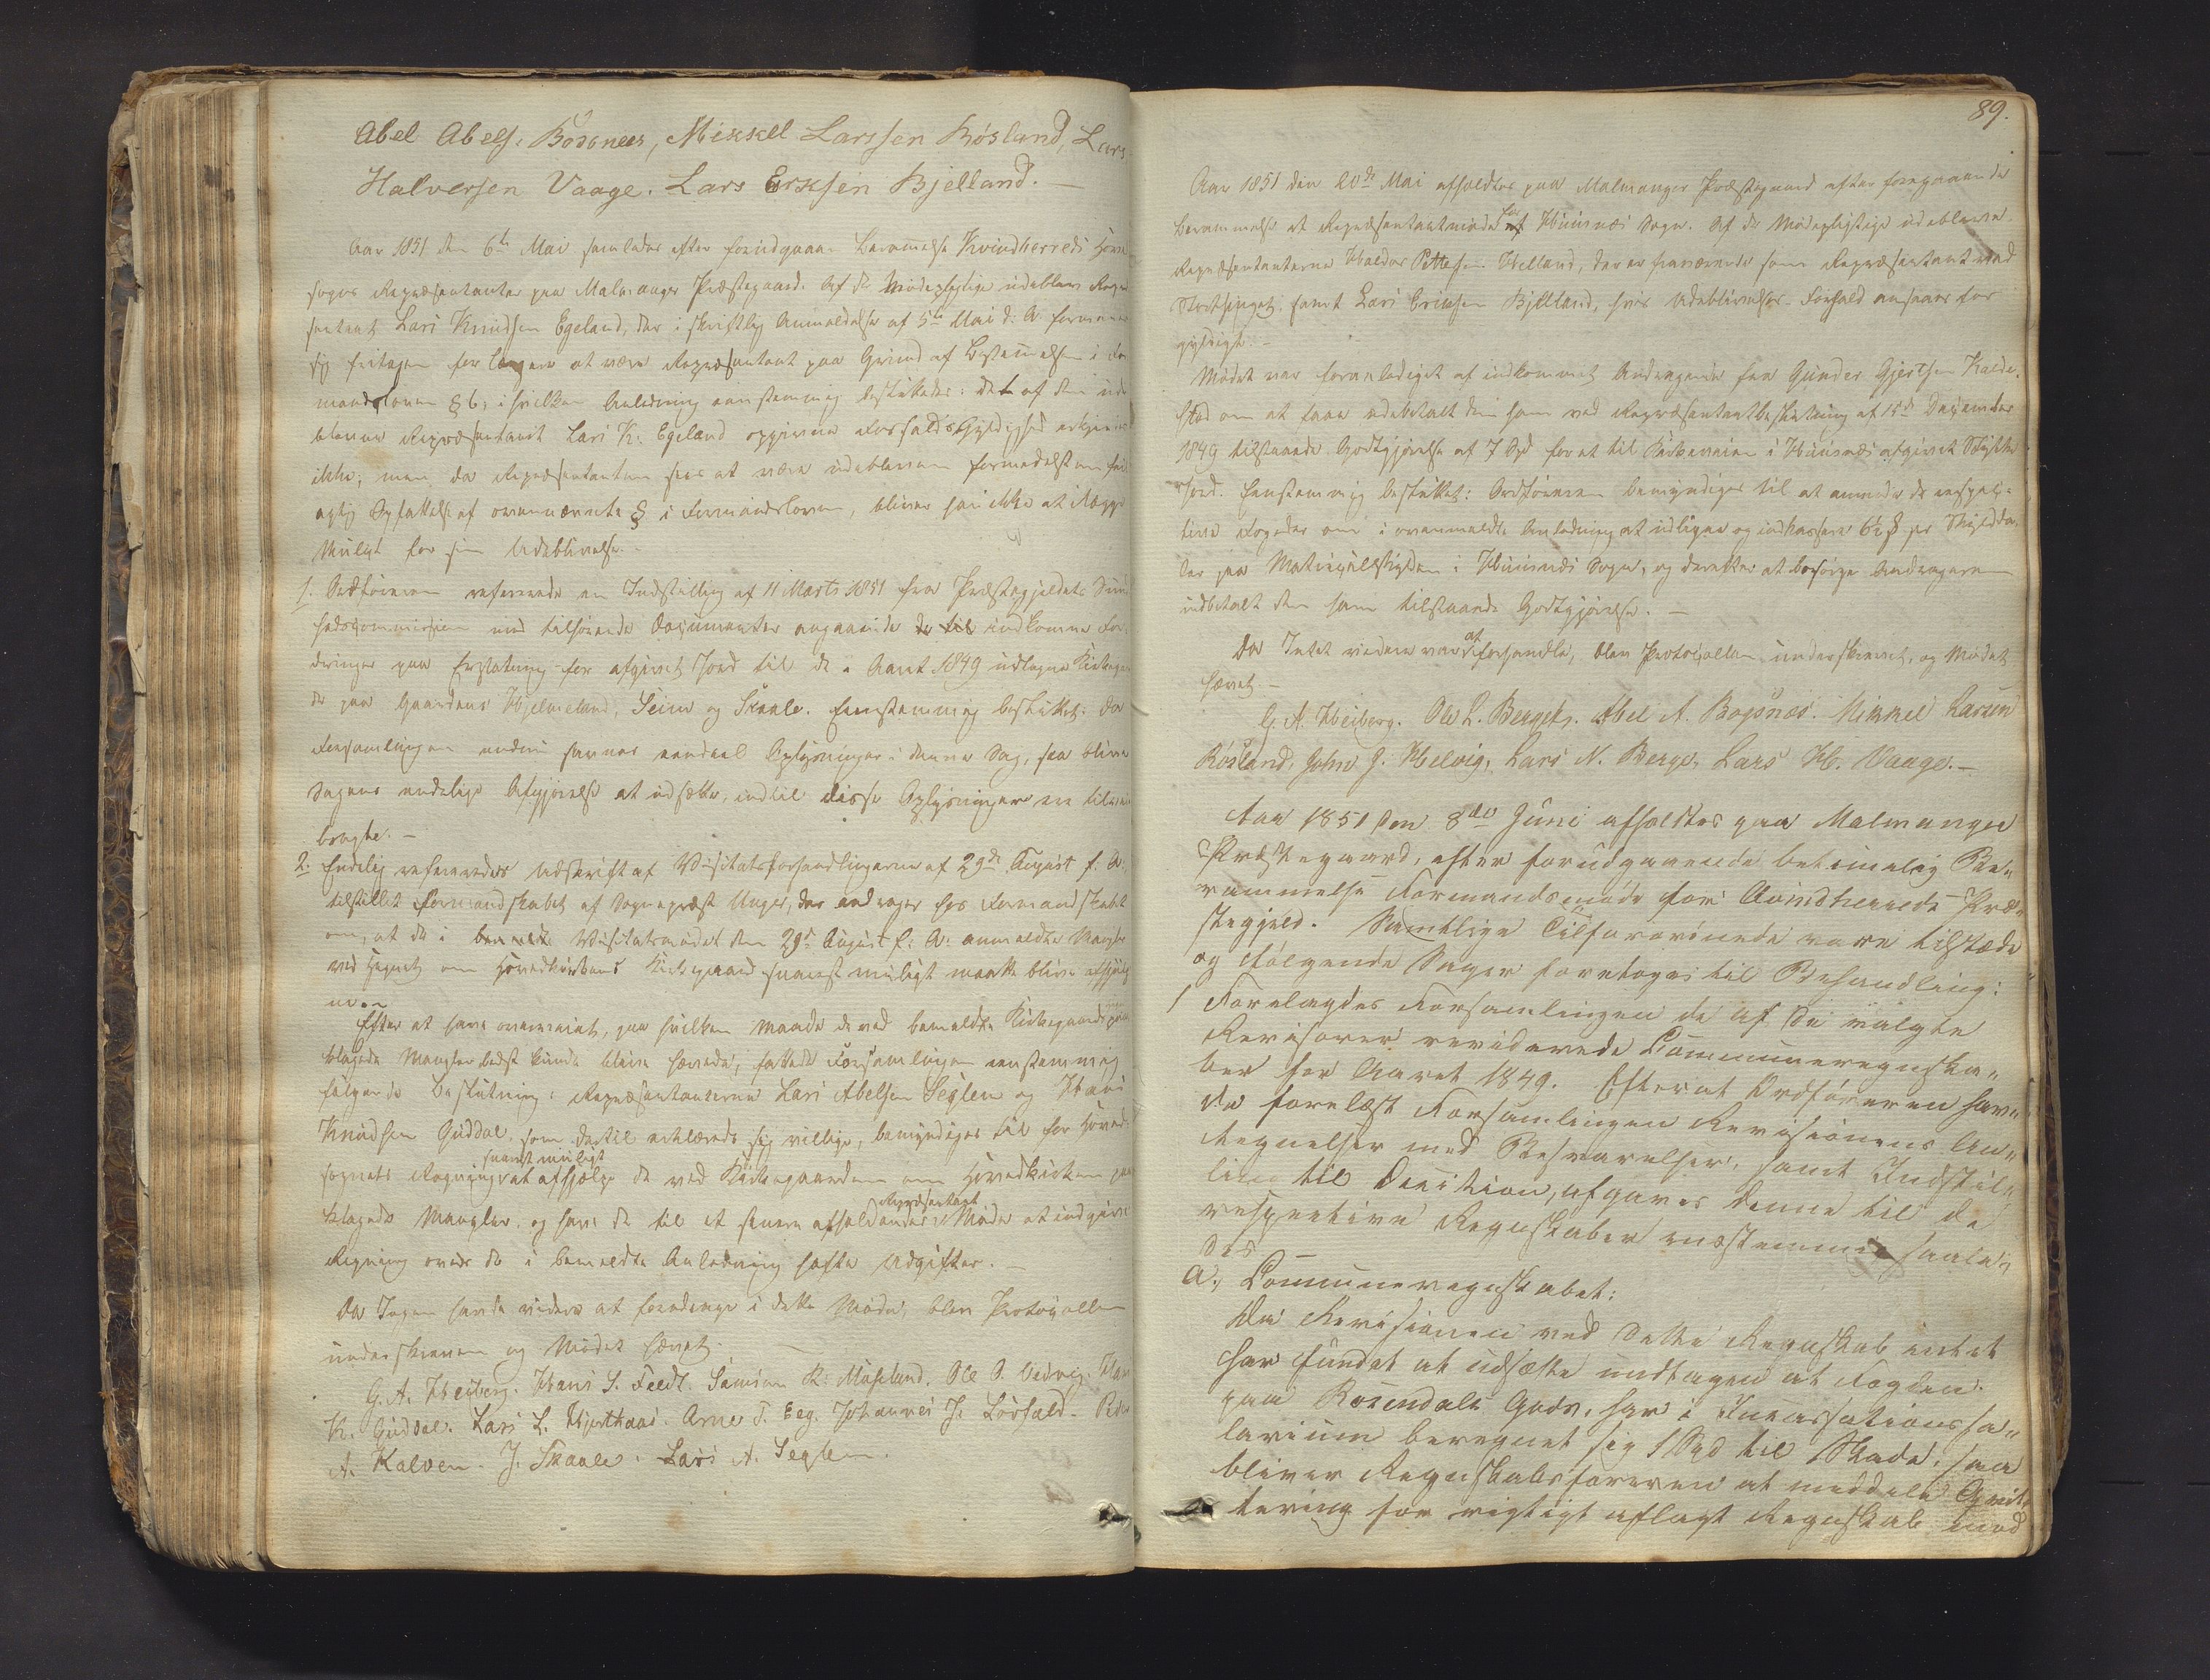 Abel Abels. Bogsnæs, Mikkel Larssen Røsland, Lars
Halversen Vaage. Lars Erksen Bjelland. —
Aar 1851 den 6te Mai samledes efter forudgaaen Berammelse Kvindherreds Hoved
sogns Repræsentanter paa Malmanger Præstegaard. Af de Mødepligtige udeblev Repræ
sentant Lars Knudsen Egeland, der i skriftlig Anmeldelse af 5te Mai d. A. formener
sig fritagen for længere at være Repræsentant paa Grund af Bestemmelsen i For
mandsloven § 6, i hvilken Anledning eenstemmig besluttedes: Det af den ude
blevne Repræsentant Lars K. Egeland opgivne Forfalds Gyldighed erkjendes
ikke; men da Repræsentanten sees at være udebleven formedelst en feil
agtig Opfattelse af ovennævnte § i Formandsloven, bliver han ikke at ilægge
Mulct for sin Udeblivelse. —
1. Ordføreren refererede en Indstilling af 11 Marts 1851 fra Præstegjeldets Sund
hedscommission med tilhørende Documenter angaaende de til indkomne For
dringer paa Erstatning for afgivet Jord til de i Aaret 1849 udlagne Kirkegaar
de paa Gaardene Hjelmeland, Seim og Skaale. Eenstemmig besluttet: Da
Forsamlingen endnu savner eendeel Oplysninger i denne Sag, saa bliver
Sagens endelige Afgjørelse at udsætte, indtil disse Oplysninger ere tilveie
bragte. —
2. Endelig refereredes Udskrift af Visitatsforhandlingerne af 29de August f. A.,
tilstillet Formandskabet af Sognepræst Unger, der andrager hos Formandskabet
om, at de i bemeldte Visitatsmødet den 29de August f. A. anmeldte Mangler
ved Hegnet om Hovedkirkens Kirkegaard snarest muligt maatte blive afhjulp
ne. —
Efter at have overveiet, paa hvilken Maade de ved bemeldte Kirkegaard paa
klagede Mangler bedst kunde blive hævede, fattede Forsamlingen eenstemmig
følgende Beslutning: Repræsentanterne Lars Abelsen Seglem og Hans
Knudsen Guddal, som dertil erklærede sig villige, bemyndiges til for Hoved
snarest muligt
sognets Regning at afhjælpe de ved Kirkegaarden om Hovedkirken paa
Repræsentant
klagede Mangler, og have de til et senere afholdendes Møde at indgive
Regning over de i bemeldte Anledning hafte Udgifter. —
Da Ingen havde videre at foredrage i dette Møde, blev Protocollen
underskreven og Mødet hævet. —
G. A. Heiberg. Hans S. Feedt. Samson K. Møsland. Ole O. Vedvig. Hans
K. Guddal. Lars L. Hjerthaas. Arne T. Eeg. Johannes J. Løvfald.
A. Kalven. J. Skaale. Lars A. Seglem.
89.
Aar 1851 den 20de Mai afholdtes paa Malmanger Præstegaard efter foregaaende
for
Berammelse et Repræsentantmøde af Huusnæs Sogn. Af de Mødepligtige udebleve
Repræsentanterne Haldor Pettersen Helland, der er fraværende som Repræsentant ved
Storthinget, samt Lars Eriksen Bjelland, hvis Udeblivelses-Forfald ansaaes for
gyldigt. —
Mødet var foranlediget af indkommet Andragende fra Gunder Gjertsen Kalde
stad om at faae udbetalt den ham ved Repræsentantbeslutning af 15de December
1849 tilstaaede Godtgjørelse af 7 Spd for et til Kirkeveien i Huusnæs afgivet Stykke
Jord. Eenstemmig besluttet: Ordføreren bemyndiges til at anmode de respec-
tive Fogder om i ovenmeldte Anledning at udligne og indkassere 6½ ß pr Skylddа-
ler paa Matriculskylden i Huusnæs Sogn, og derefter at besørge Andrageren
udbetalt den ham tilstaaede Godtgjørelse. —
at
Da Intet videre var forhandle, blev Protocollen underskrevet, og Mødet
hævet. —
G. A. Heiberg. Ole L. Berget. Abel A. Bogsnæs. Mikkel Larsen
Røsland, John J. Helvig, Lars N. Berge, Lars H. Vaage. —
Aar 1851 den 3die Juni afholdtes paa Malmanger
Præstegaard, efter forudgaaende betimelig Be„
rammelse Formandsmøde for Qvindherreds Præ„
stegjeld. Samtlige Tilforordnede vare tilstæde
og følgende Sager foretoges til Behandling:
1 Forelagdes Forsamlingen de af de valgte
Revisorer reviderede Communeregnska„
ber for Aaret 1849. Efterat Ordføreren hav„
de forelæst Forsamlingen Revisionens An„
tegnelser med Besvarelser, samt Indstil„
ling til Decision, afgaves denne til de
respective Regnskaber eenstemmig saale„
des
a., Communeregnskabet:
Da Revisionen ved dette Regnskab intet
har fundet at udsætte undtagen at Fogden
paa Rosendals Gods, har i Incassationssa„
larium beregnet sig 1 Spd til Skade, saa
bliver Regnskabsføreren at meddele Qvit„
tering for rigtigt aflagt Regnskab mod